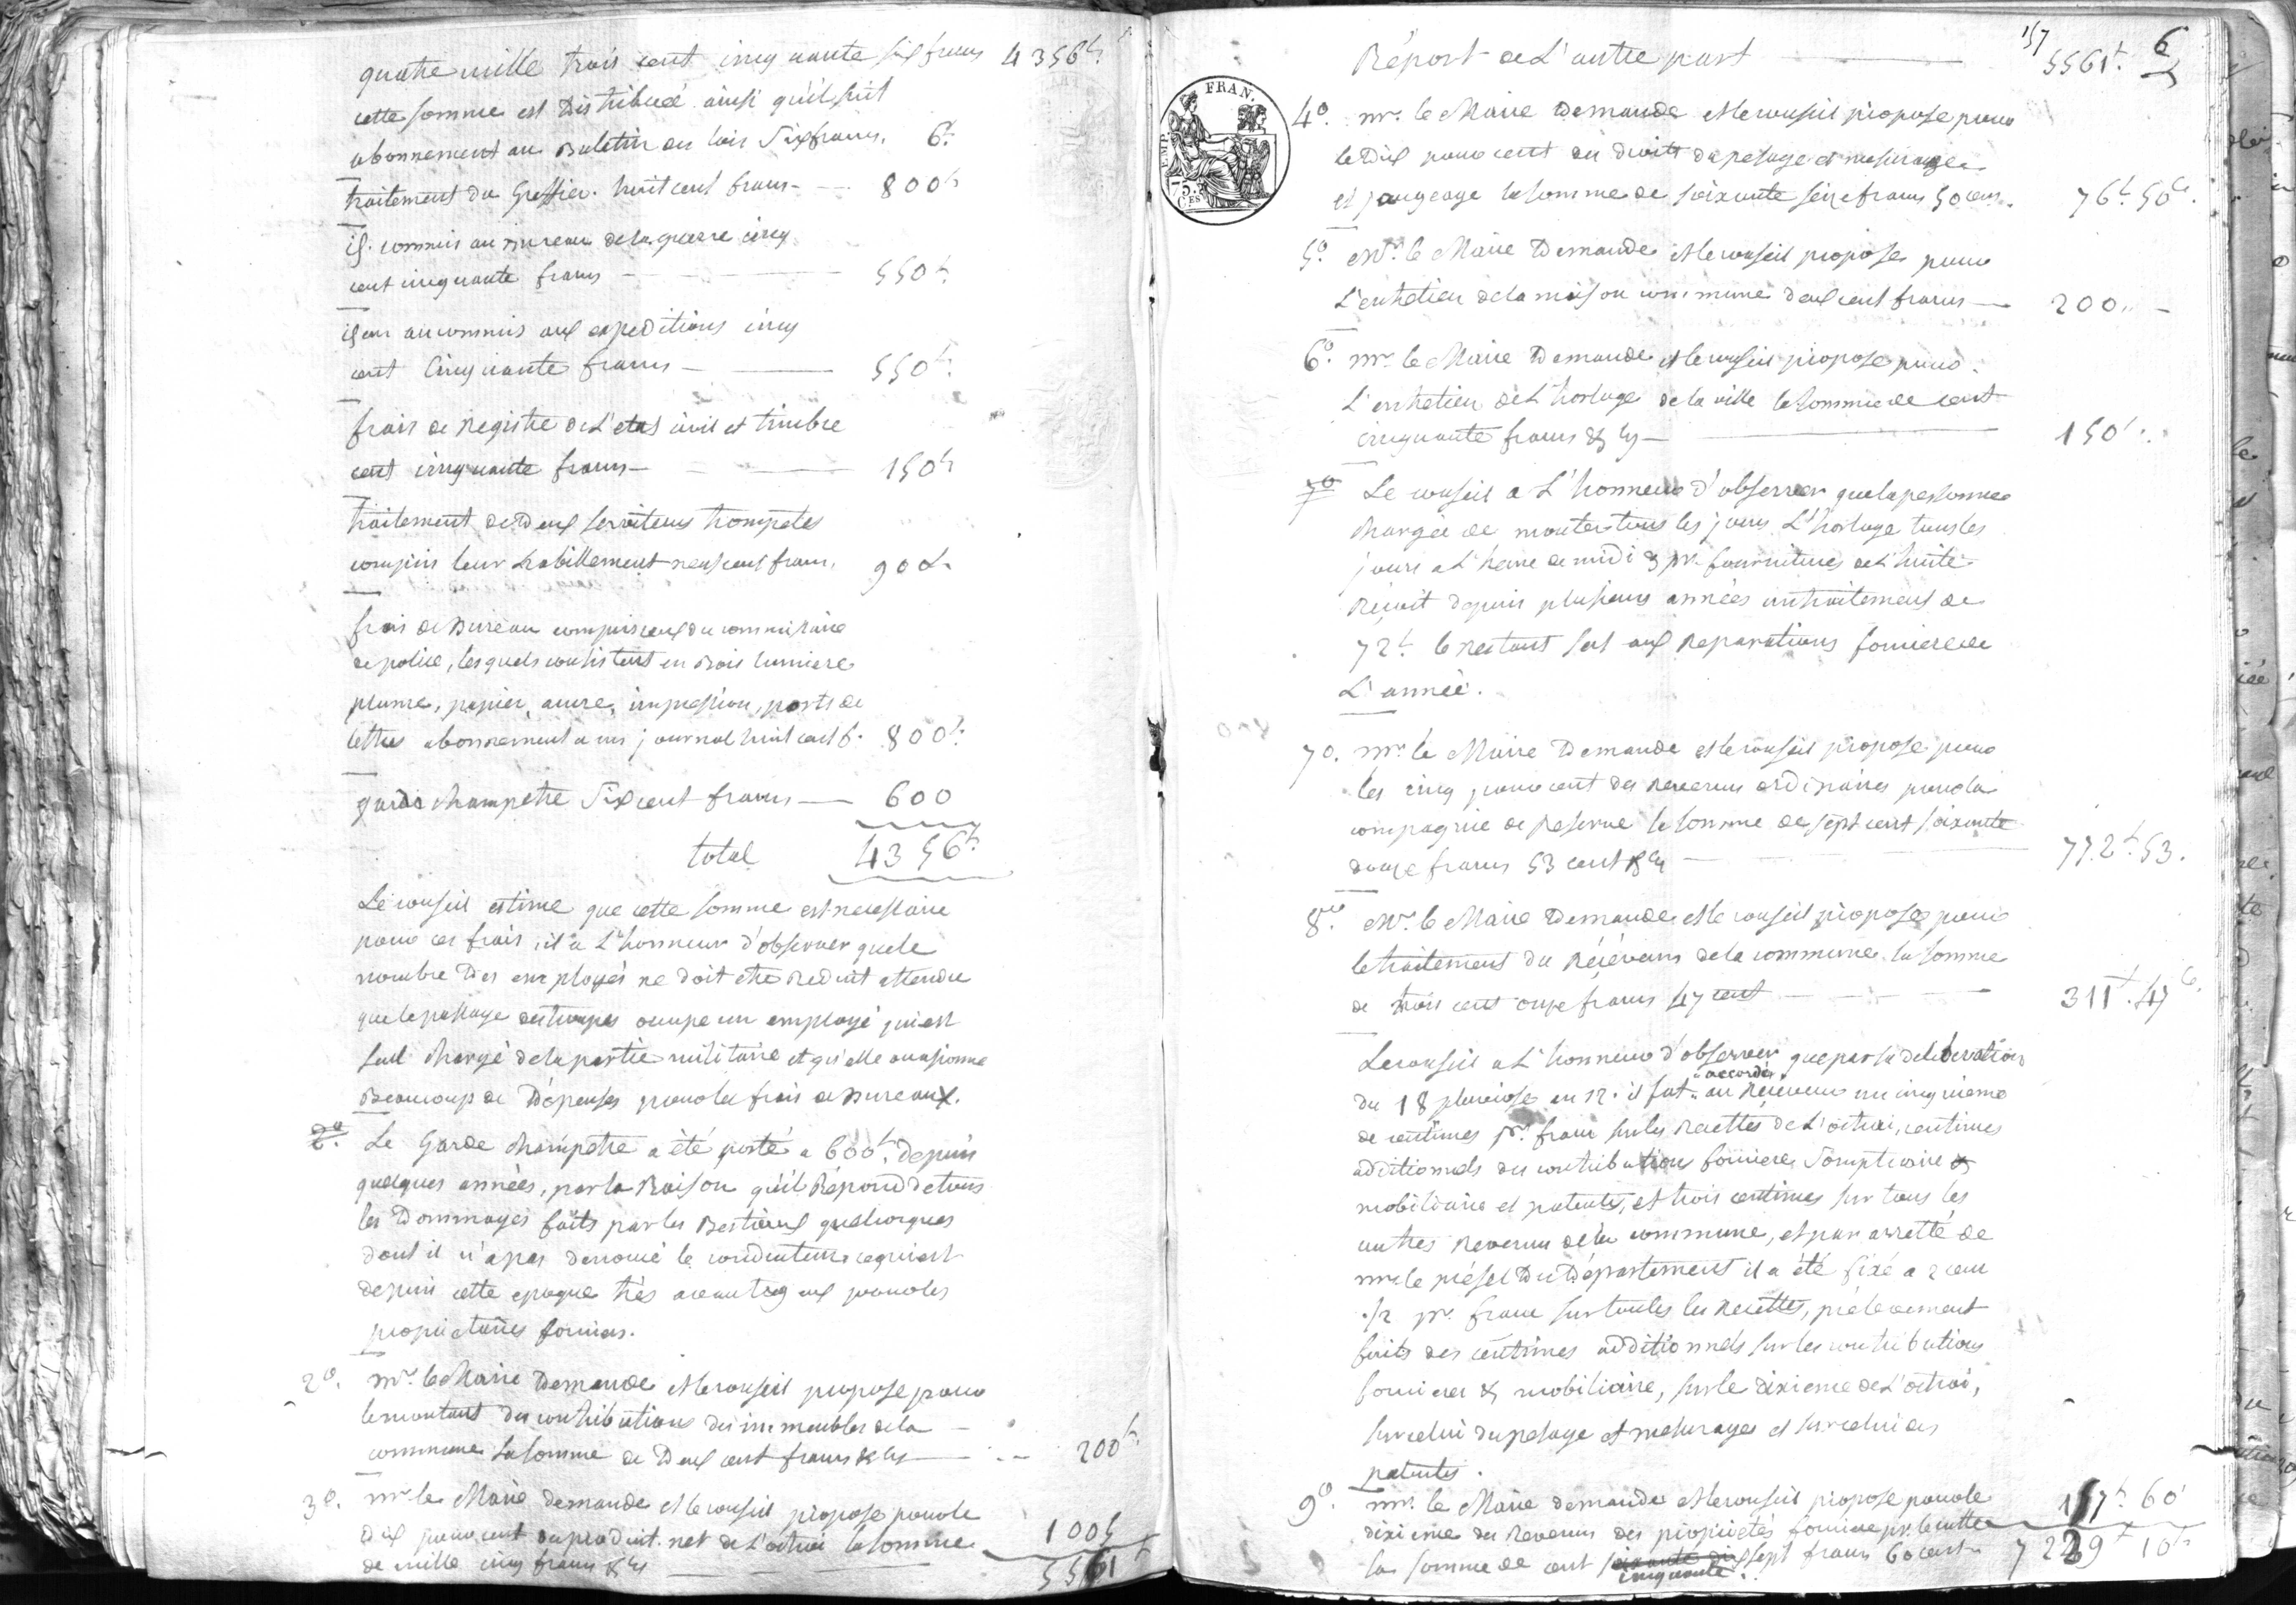 quatre mille trois cent cinquante six francs 4356f.
cette somme est Distribueé ainsi qu'il suit
abonnement au Buletin des lois Six francs. 6f.
traitement du Greffier. huit cent francs - 800f.
commis au Bureau de la guerre cinq
cent cinquante francs - 550f.
au commis aux expeditions cinq
cent Cinquante francs - 550f.
frais de Registre de L'etat civil et timbre
cent cinquante francs - 150f.
traitement de Deux serviteurs trompetes
compris leur habillement neuf cent francs. 900f.
frais de Bureau compris ceux du commissaire
de police, lesquels consistent en Bois lumiere
plume, papier, ancre, impression, ports de
lettres abonnement a un journal huit cent f. 800f.
garde champetre Six cent francs - 600
total 4356f.
Le conseil estime que cette somme est necessaire
pour ces frais, il a L'honneur d'observer que le
nombre Des employés ne doit etre Reduit attendu
que le passage des troupes occupe un employé qui est
seul chargé de la partie militaire et qu'elle occasionne
Beaucoup de Dépenses pour les frais de Bureaux.
2o. Le Garde champetre a été porté a 600f. depuis
quelques années, par la Raison qu'il Répond de tous
les Dommages faits par les Bestiaux quelconques
dont il n'a pas denoncé le conducteur ce qui est
depuis cette epoque très avantageux pour les
proprietaires fonciers.
2o. mr. le Maire Demande et le conseil propose pour
le montant des contributions des immeubles de la
commune la somme de Deux cent francs & cy - 200f.
3o. mr. le Maire demande et le conseil propose pour le
dix pour cent du produit net de L'octroi la somme 1005
de mille cinq francs & cy 5561f
Réport de L'autre part 5561f. 157 6
FRAN.
EMP.
75.
C.ES
4o. mr. le Maire Demande et le conseil propose pour
le Dix pour cent des droits du pesage et mesurage
et jaugeage la somme de soixante seize francs 50 cens. 76f. 50c.
5o. Mr. le Maire Demande et le conseil propose pour
L'entretien de la maison commune deux cent francs - 200 -
6o. mr. le Maire Demande et le conseil propose pour
L'entretien de L'horloge de la ville la somme de cent
cinquante francs & cy - 150f.
7o Le conseil a L'honneur d'observer que la personne
chargée de monter tous les jours L'horloge tous les
jours a L'heure de midi & pr. fournitures de L'huile
Réçoit depuis plusieurs années un traitement de
72f. le restant sert aux Reparations de
L'année.
7o. mr. le Maire Demande et le conseil propose pour
les cinq pour cent des Revenus ordinaires pour la
compagnie de Reserve la somme de sept cent soixante
douze francs 53 cent & cy - 772f. 53.
8o. Mr. le Maire Demande et le conseil propose pour
le traitement du Réçéveur de la commune la somme
de trois cent onze francs 47 cent - 311f. 47c.
Le conseil a L'honneur d'observer que par sa deliberation
du 18 pluviose an 12. il fut accordé au Réçeveur un cinquieme
de centimes pr. franc sur les Recettes de L'octroi, centimes
additionnels des contributions foncieres Somptuaire &
mobiliaire et patentes, et trois centimes sur tous les
autres Revenus de la commune, et par arretté de
mr. le préfet Du Département il a été fixé a 2 cent
1/2 pr. franc sur toutes les Recettes, prélevement
faits des centimes additionnels sur les contributions
foncieres & mobiliaire, sur le dixieme de L'octroi,
sur celui du pesage et mesurages et sur celui des
patentes.
9o. mr. le Maire demande et le conseil propose pour le
dixieme des Revenus des propriétés foncieres pr. le culte 157f. 60
la somme de cent soixante dix sept francs 60 cent - 7229f 10c
cinquante.